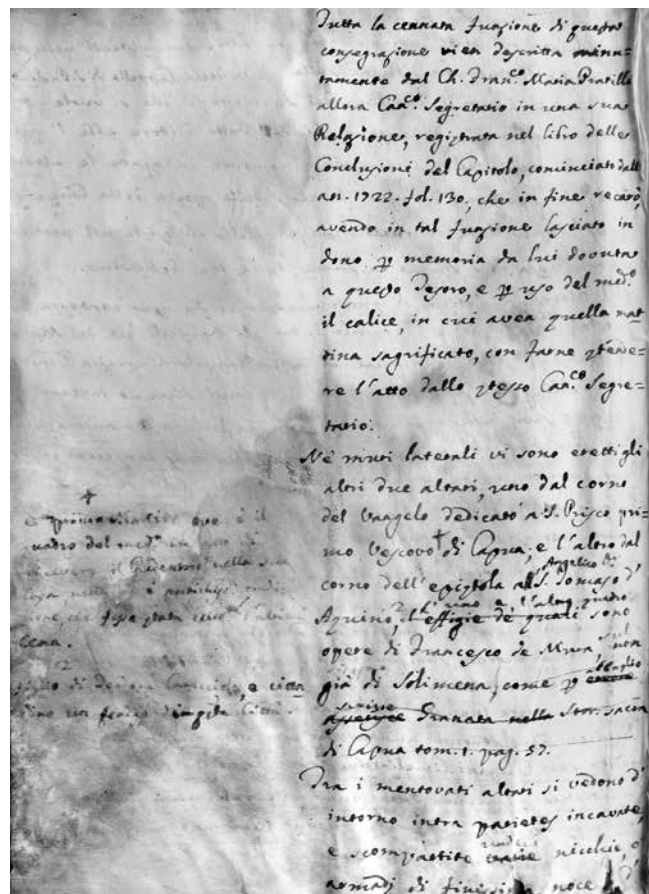 Tutta la cennata funzione di questa
consegrazione vien descritta minu=
tamente dal Ch. Fran.co Maria Pratilli
allora Can.co Segretario in una sua
Relazione, registrata nel libro delle
Conclusioni del Capitolo, cominciato dall'
an. 1722. fol. 130, che in fine recarò,
avendo in tal funzione lasciato in
dono per memoria da lui dovuta
a questo Tesoro, e per uso del med.o
il calice, in cui avea quella mat=
tina sagrificato, con farne stende=
re l'atto dallo stesso Can.co Segre=
tario.
Ne' muri laterali vi sono eretti gli
altri due altari, uno dal corno
del Vangelo dedicato a S. Prisco pri=
mo Vescovo + di Capua, e l'altro dal
corno dell'epistola all' Angelico di S. Tomaso d'
Aquino, l'uno e l'altro quadro l'effigie de' quali sono
opere di Francesco de Mura, non
già di Solimena, come per
scrisse Granata nella Stor. sacra
di Capua tom. 1. pag. 57.
Tra i mentovati altari si vedono d'
intorno intra parietes incavate,
e scompartite varie nicchie, o
armadj di finissima noce
+
quadro del med.o in
il Redentore nella sua
cena.
e citta
Città.